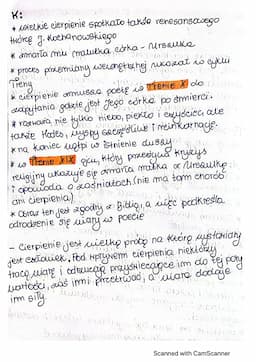 K:
* wielkie cierpienie spotkało także renesansowego
twórcę J. Kochanowskiego
* umarła mu malutka córka - Urszulka
* proces przemiany wewnętrznej ukazał w cyklu
Treny
* cierpienie zmusza poetę w Trenie X do
zapytania gdzie jest jego córka po śmierci.
* rozważa nie tylko niebo, piekło i czyściec, ale
także Hades, wyspy szczęśliwe i reinkarnację.
* na koniec wątpi w istnienie duszy
* w Trenie XIX ojcu, który przeżywa kryzys
religijny ukazuje się zmarła matka z Urszulką
i opowiada o zaświatach (nie ma tam chorób
ani cierpienia)
* Obraz ten jest zgodny z Biblią, a więc podkreśla
odrodzenie się wiary w poecie
- Cierpienie jest wielką próbą na którą wystawiany
jest człowiek. Pod wpływem cierpienia niektórzy
tracą wiarę i odrzucają przyświecające im do tej pory
wartości, zaś inni przetrwać, a wiara dodaje
im siły.
Scanned with CamScanner